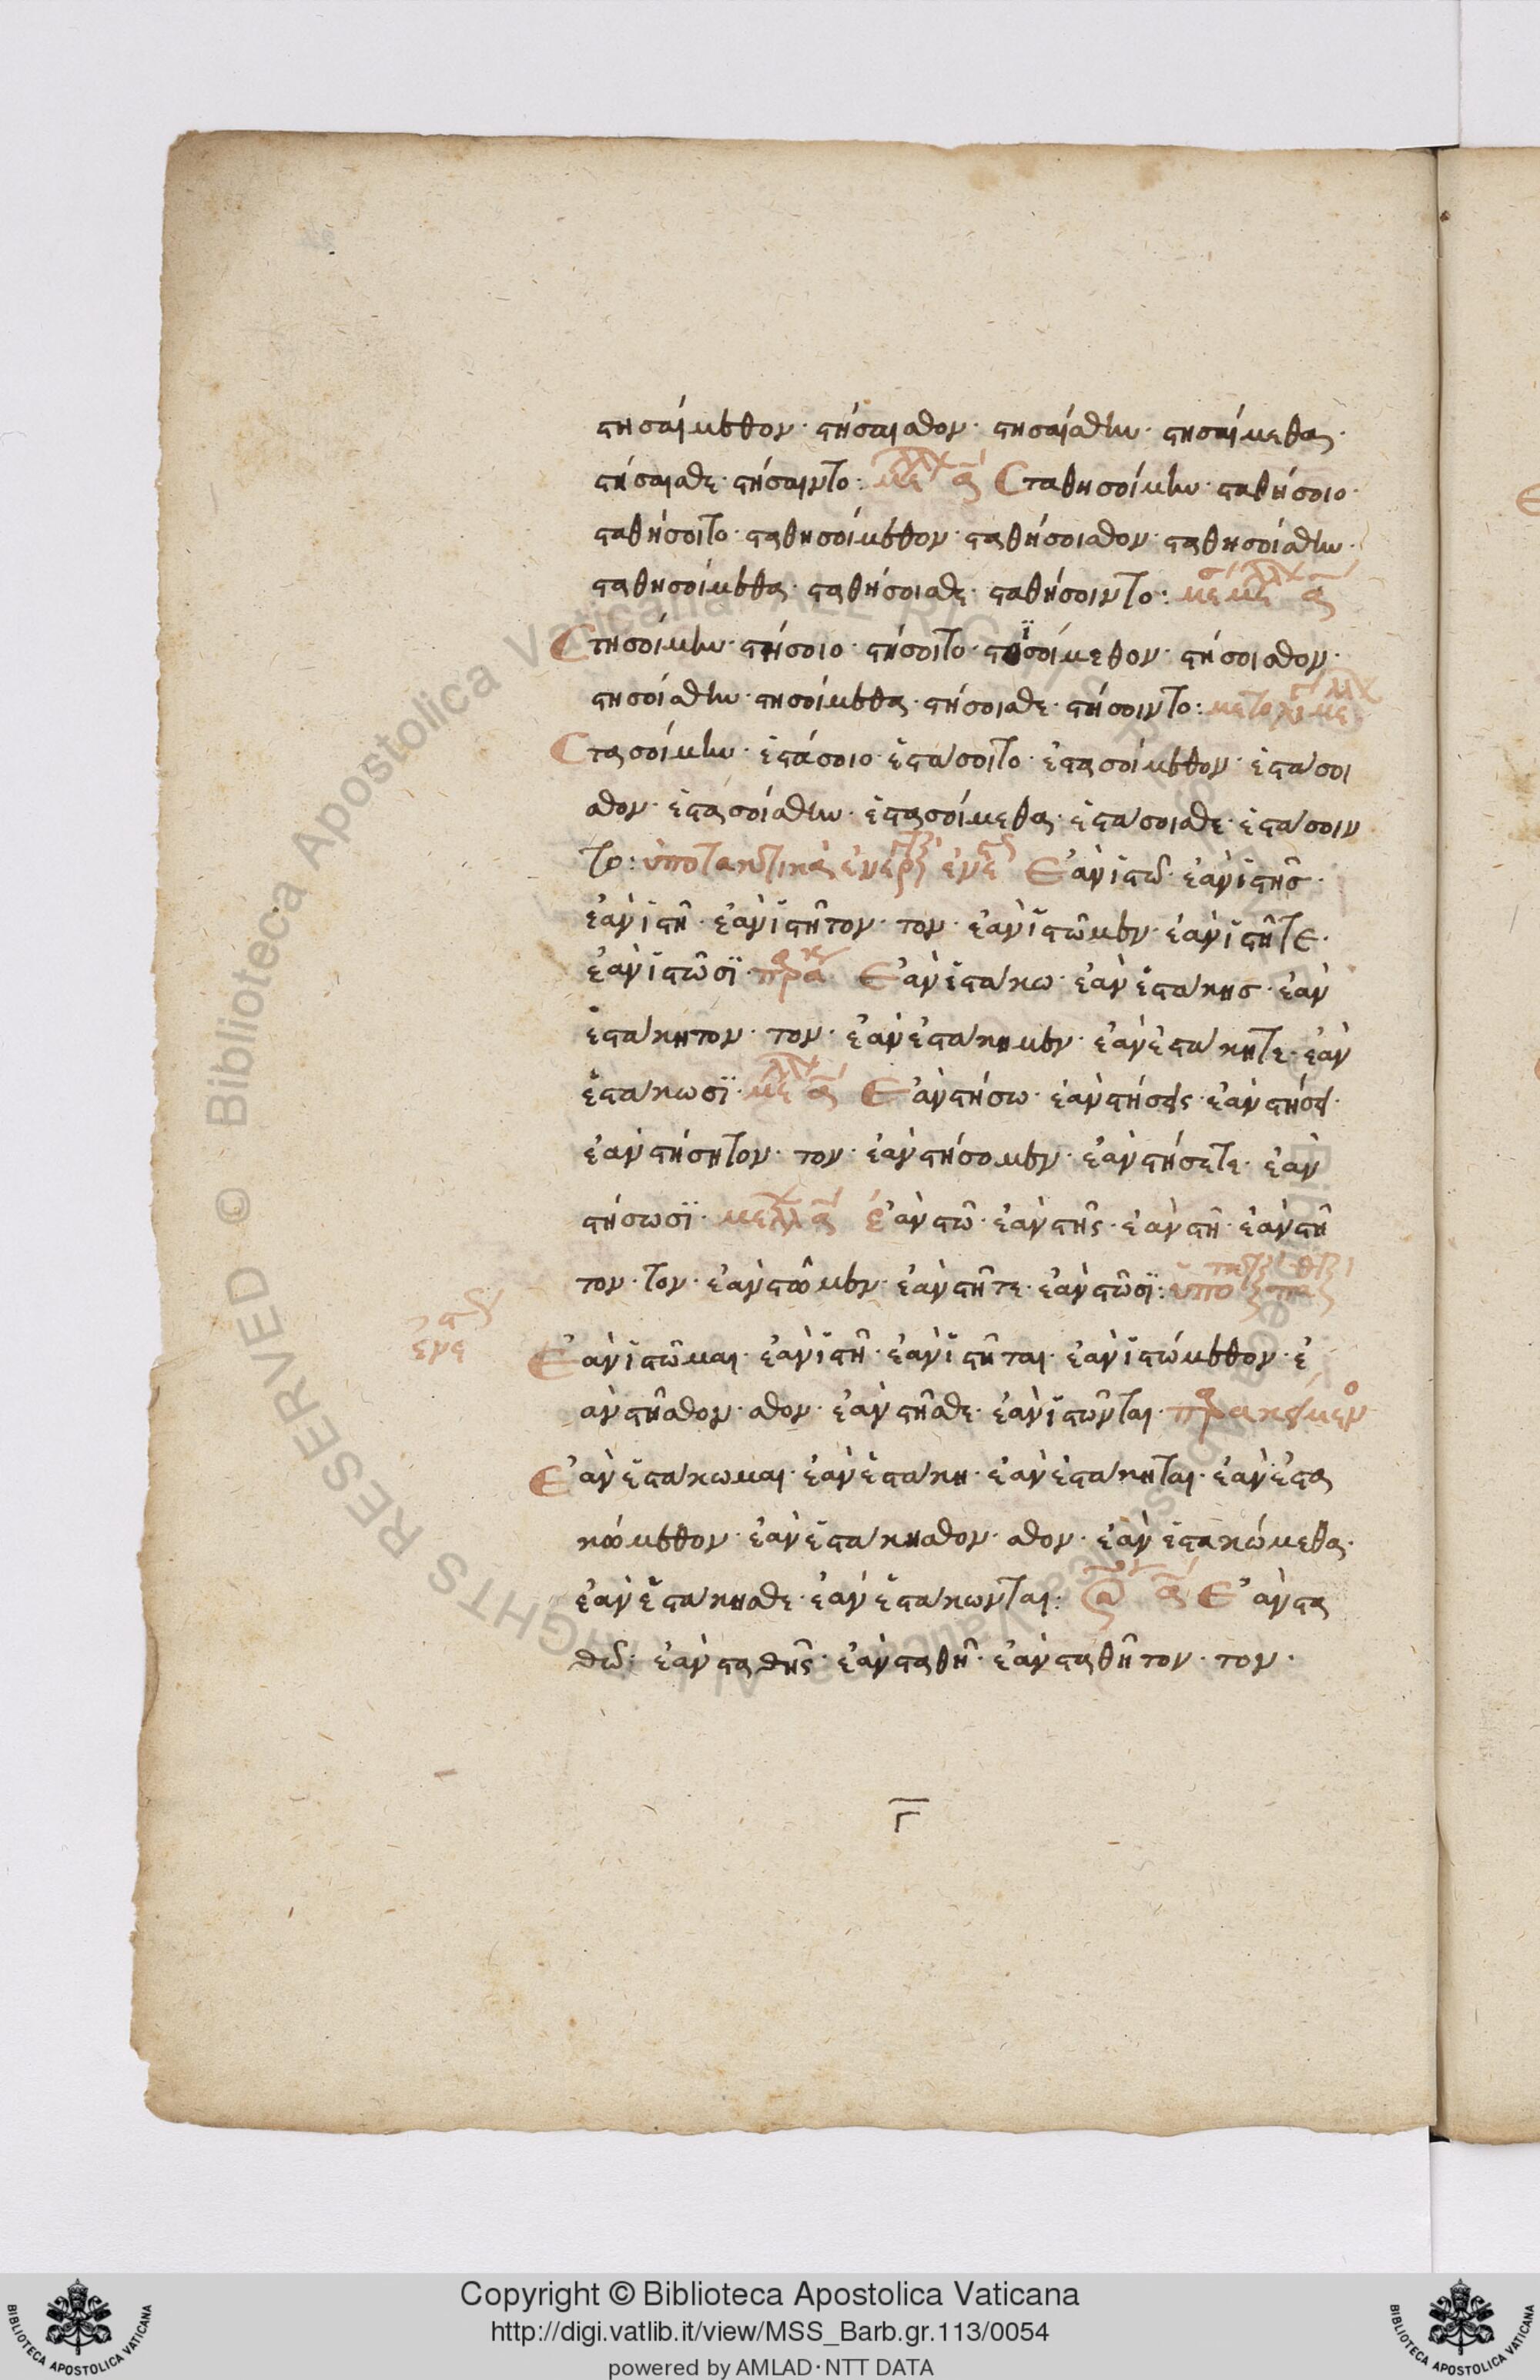 στησαίμεθον· στήσαισθον· στησαίσθην· στησαίμεθα·
στήσαισθε· στήσαιντο: Σταθησοίμην· σταθήσοιο·
σταθήσοιτο· σταθησοίμεθον· σταθήσοισθον· σταθησοίσθην·
σταθησοίμεθα· σταθήσοισθε· σταθήσοιντο:
Στησοίμην· στήσοιο· στήσοιτο· στησοίμεθον· στήσοισθον·
στησοίσθην· στησοίμεθα· στήσοισθε· στήσοιντο:
Στασοίμην· ἑστάσοιο· ἑστάσοιτο· ἑστασοίμεθον· ἑστάσοι
σθον· ἑστασοίσθην· ἑστασοίμεθα· ἑστάσοισθε· ἑστάσοιν
το: ὑποτακτικὰ Ἐὰν ἱστῶ· ἐὰν ἱστῇς·
ἐὰν ἱστῇ· ἐὰν ἱστῆτον· τον· ἐὰν ἱστῶμεν· ἐὰν ἱστῆτε·
ἐὰν ἱστῶσϊ· Ἐὰν ἑστάκω· ἐὰν ἑστάκης· ἐὰν
ἑστάκητον· τον· ἐὰν ἑστάκημεν· ἐὰν ἑστάκητε· ἐὰν
ἑστάκωσϊ· Ἐὰν στήσω· ἐὰν στήσῃς· ἐὰν στήσῃ·
ἐὰν στήσητον· τον· ἐὰν στήσομεν· ἐὰν στήσετε· ἐὰν
στήσωσϊ· ἐὰν στῶ· ἐὰν στῇς· ἐὰν στῇ· ἐὰν στῆ
τον· τον· ἐὰν στῶμεν· ἐὰν στῆτε· ἐὰν στῶσϊ:
Ἐὰν ἱστῶμαι· ἐὰν ἱστῇ· ἐὰν ἱστῆται· ἐὰν ἱστώμεθον· ἐ
ὰν στῆσθον· σθον· ἐὰν στῆσθε· ἐὰν ἱστῶνται·
Ἐὰν ἑστάκωμαι· ἐὰν ἑστάκη· ἐὰν ἑστάκηται· ἐὰν ἑστα
κώμεθον· ἐὰν ἑστάκησθον· σθον· ἐὰν ἑστακώμεθα·
ἐὰν ἑστάκησθε· ἐὰν ἑστάκωνται: Ἐὰν στα
θῶ· ἐὰν σταθῇς· ἐὰν σταθῇ· ἐὰν σταθῆτον· τον·
Γ
Copyright © Biblioteca Apostolica Vaticana
http://digi.vatlib.it/view/MSS_Barb.gr.113/0054
powered by AMLAD·NTT DATA